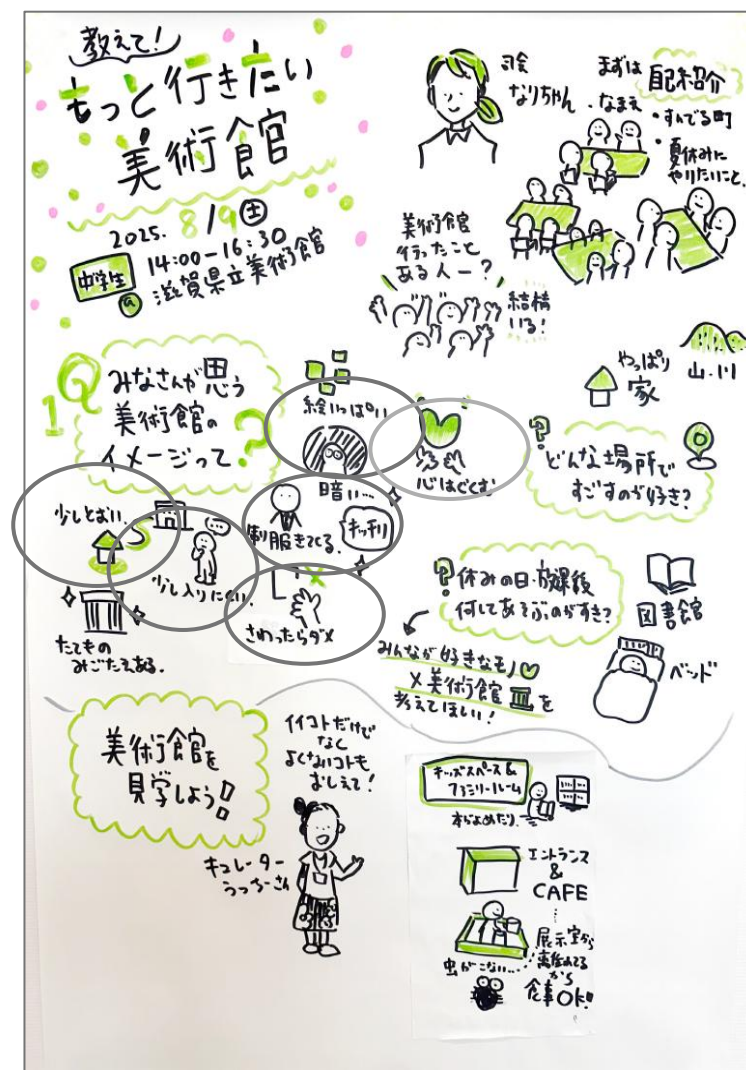 教えて!
もっと行きたい
美術館
2025. 8/9 土
14:00-16:30
中学生
滋賀県立美術館
司会
なりちゃん
まずは 自己紹介
・なまえ
・すんでる町
・夏休みに
やりたいこと。
美術館
行ったこと
ある人ー?
結構
いる!
1Q
みなさんが思う
美術館の
イメージって?
絵いっぱい
暗い…
心はぐくむ
少しとおい。
少し入りにくい。
制服きてる。
キッチリ
さわったらダメ
たてもの
みごたえある。
やっぱり
家
山・川
?
どんな場所で
すごすのが好き?
?
休みの日・放課後
何してあそぶのがすき?
図書館
ベッド
みんなが好きなモノ
×美術館を
考えてほしい!
美術館を
見学しよう!
イイコトだけで
なく
よくないコトも
おしえて!
キュレーター
うっちーさん
キッズスペース&
ファミリールーム
本がよめたり、
エントランス
&
CAFE
展示室から
離れてる
から
食事OK!!
虫がこない…